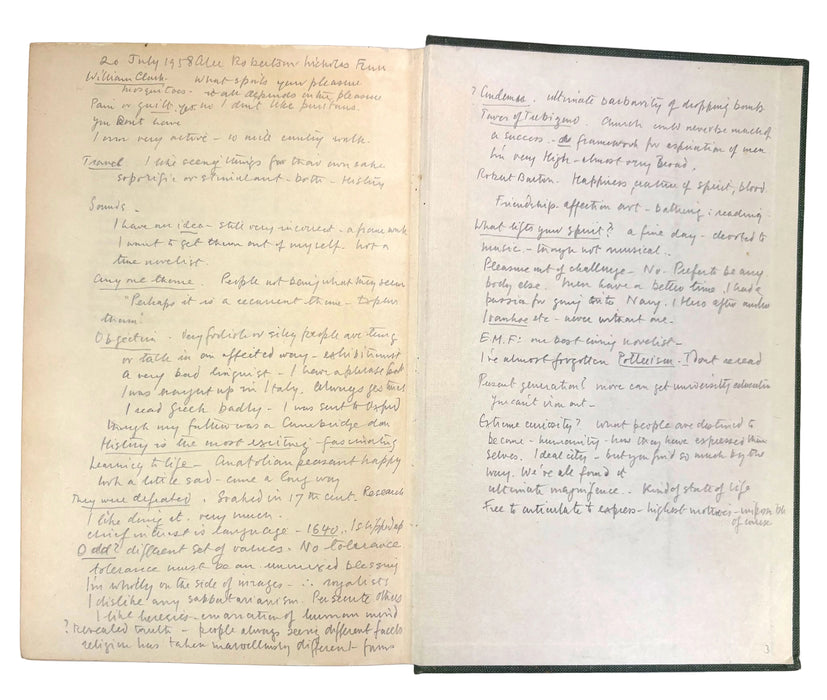 20 July 1958 Alec Robertson Nicholas Fenn
William Clark. What spoils your pleasure
mosquitoes. it all depends on the pleasure
Pain or guilt. yet no I don't like puritans.
you don't have
I am very active – 10 mile country walk.
Travel I like seeing things for their own sake
soporific or stimulant – both – History
Sounds –
I have an idea – still very incorrect – a frame work
I want to get them out of myself. Not a
true novelist.
Any one theme. People not being what they seem
"Perhaps it is a recurrent theme – Explore
them"
Objection. Very foolish or silly people writing
or talk in an affected way – exhibitionist
a very bad linguist – I have a phrase book
I was brought up in Italy. Always gestures
I read Greek badly – I was sent to Oxford
though my father was a Cambridge don
History is the most exciting – fascinating
Learning to life – Anatolian peasant happy
look a little sad – came a long way
They were defeated. Soaked in 17th cent. Research
I like doing it. very much.
chief interest is language – 1640.. I slipped up
Odd? different set of values. No tolerance
tolerance must be an unmixed blessing
I'm wholly on the side of mirages – ∴ royalists
I dislike any sabbatarianism. Persecute others
I like heresies – emanation of human mind
? Revealed truth – people always seeing different facets
religion has taken marvellously different forms
? Condemns. ultimate barbarity of dropping bombs
Tower of Trebizond Church could never be much of
a success. – framework for aspiration of men
I'm very High – almost very Broad.
Robert Burton. Happiness, creature of spirit, blood
Friendship. affection art – bathing: reading –
What lifts your spirit? a fine day – devoted to
music. – though not musical..
Pleasure out of challenge – No – Prefer to be any
body else. Men have a better time. I had a
passion for going into Navy. I Hero after another
Ivanhoe etc – never without one.
E.M.F: our best living novelist –
I've almost forgotten Potterism. I Dont reread
Present generation? more can get university education
You can't iron out –
Extreme curiosity? what people are destined to
become – humanity – how they have expressed them
selves. Ideal city – but you find so much by the
way. We've all found it
ultimate magnificence.. Kind of state of life
Free to articulate to express – highest motives – impossible
of course
3